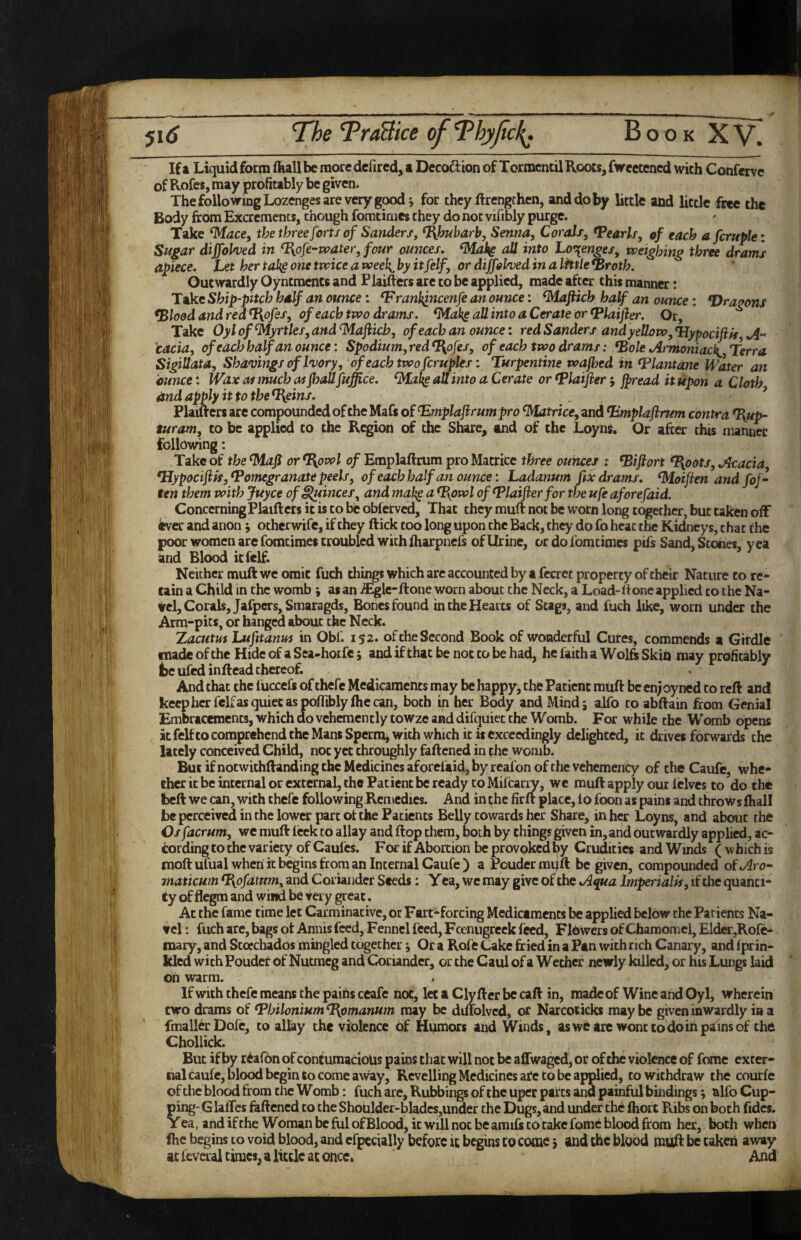 516 The Practice of Physick. Book XV.
If a Liquid form ſhall be more deſired, a Decoction of Tormentil Roots, ſweetened with Conſerve
of Roſes, may profitably be given.
The following Lozenges are very good; for they ſtrengthen, and do by little and little free the
Body from Excrements, though ſomtimes they do not viſibly purge.
Take Mace, the three ſorts of Sanders, Rhubarb, Senna, Corals, Pearls, of each a ſcruple:
Sugar diſſolved in Roſe-water, four ounces. Make all into Lozenges, weighing three drams
apiece. Let her take one twice a week by it ſelf, or diſſolved in a little Broth.
Outwardly Oyntments and Plaiſters are to be applied, made after this manner:
Take Ship-pitch half an ounce: Frankincenſe an ounce: Maſtich half an ounce: Dragons
Blood and red Roſes, of each two drams. Make all into a Cerate or Plaiſter. Or,
Take Oyl of Myrtles, and Maſtich, of each an ounce: red Sanders and yellow, Hypociſtis, A-
cacia, of each half an ounce: Spodium, red Roſes, of each two drams: Bole Armoniack, Terra
Sigillata, Shavings of Ivory, of each two ſcruples: Turpentine waſhed in Plantane Water an
ounce: Wax as much as ſhall ſuffice. Make all into a Cerate or Plaiſter; ſpread it upon a Cloth,
and apply it to the Reins.
Plaiſters are compounded of the Maſs of Emplaſtrum pro Matrice, and Emplaſtrum contra Rup-
turam, to be applied to the Region of the Share, and of the Loyns. Or after this manner
following:
Take of the Maſs or Rowl of Emplaſtrum pro Matrice three ounces: Biſtort Roots, Acacia,
Hypociſtis, Pomegranate peels, of each half an ounce: Ladanum ſix drams. Moiſten and ſof-
ten them with Juyce of Quinces, and make a Rowl of Plaiſter for the uſe aforeſaid.
Concerning Plaiſters it is to be obſerved, That they muſt not be worn long together, but taken off
ever and anon; otherwiſe, if they ſtick too long upon the Back, they do ſo heat the Kidneys, that the
poor women are ſomtimes troubled with ſharpneſs of Urine, or do ſomtimes piſs Sand, Stones, yea
and Blood it ſelf.
Neither muſt we omit ſuch things which are accounted by a ſecret property of their Nature to re-
tain a Child in the womb; as an Ægle-ſtone worn about the Neck, a Load-ſtone applied to the Na-
vel, Corals, Jaſpers, Smaragds, Bones found in the Hearts of Stags, and ſuch like, worn under the
Arm-pits, or hanged about the Neck.
Zacutus Luſitanus in Obſ. 152. of the Second Book of wonderful Cures, commends a Girdle
made of the Hide of a Sea-horſe; and if that be not to be had, he ſaith a Wolfs Skin may profitably
be uſed inſtead thereof.
And that the ſucceſs of theſe Medicaments may be happy, the Patient muſt be enjoyned to reſt and
keep her ſelf as quiet as poſſibly ſhe can, both in her Body and Mind; alſo to abſtain from Genial
Embracements, which do vehemently towze and diſquiet the Womb. For while the Womb opens
it ſelf to comprehend the Mans Sperm, with which it is exceedingly delighted, it drives forwards the
lately conceived Child, not yet throughly faſtened in the womb.
But if notwithſtanding the Medicines aforeſaid, by reaſon of the vehemency of the Cauſe, whe-
ther it be internal or external, the Patient be ready to Miſcarry, we muſt apply our ſelves to do the
beſt we can, with theſe following Remedies. And in the firſt place, ſo ſoon as pains and throws ſhall
be perceived in the lower part of the Patients Belly towards her Share, in her Loyns, and about the
Os ſacrum, we muſt ſeek to allay and ſtop them, both by things given in, and outwardly applied, ac-
cording to the variety of Cauſes. For if Abortion be provoked by Crudities and Winds (which is
moſt uſual when it begins from an Internal Cauſe) a Pouder muſt be given, compounded of Aro-
maticum Roſatum, and Coriander Seeds: Yea, we may give of the Aqua Imperialis, if the quanti-
ty of flegm and wind be very great.
At the ſame time let Carminative, or Fart-forcing Medicaments be applied below the Patients Na-
vel: ſuch are, bags of Annis ſeed, Fennel ſeed, Fœnugreek ſeed, Flowers of Chamomel, Elder, Roſe-
mary, and Stœchados mingled together; Or a Roſe Cake fried in a Pan with rich Canary, and ſprin-
kled with Pouder of Nutmeg and Coriander, or the Caul of a Wether newly killed, or his Lungs laid
on warm.
If with theſe means the pains ceaſe not, let a Clyſter be caſt in, made of Wine and Oyl, wherein
two drams of Philonium Romanum may be diſſolved, or Narcoticks may be given inwardly in a
ſmaller Doſe, to allay the violence of Humors and Winds, as we are wont to do in pains of the
Chollick.
But if by reaſon of contumacious pains that will not be aſſwaged, or of the violence of ſome exter-
nal cauſe, blood begin to come away, Revelling Medicines are to be applied, to withdraw the courſe
of the blood from the Womb: ſuch are, Rubbings of the uper parts and painful bindings; alſo Cup-
ping-Glaſſes faſtened to the Shoulder-blades, under the Dugs, and under the ſhort Ribs on both ſides.
Yea, and if the Woman be ful of Blood, it will not be amiſs to take ſome blood from her, both when
ſhe begins to void blood, and eſpecially before it begins to come; and the blood muſt be taken away
at ſeveral times, a little at once. And